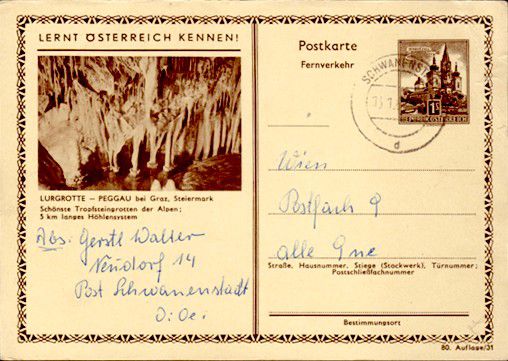 LERNT ÖSTERREICH KENNEN!
LURGROTTE — PEGGAU bei Graz, Steiermark
Schönste Tropfsteingrotten der Alpen;
5 km langes Höhlensystem
Abs: Gerstl Walter
Neudorf 14
Post Schwanenstadt
O:Oe.
Postkarte
Fernverkehr
SCHWANENST
d
1S
REPUBLIK ÖSTERREICH
Wien
Postfach 9
alle
Straße, Hausnummer, Stiege (Stockwerk), Türnummer;
Postschließfachnummer
Bestimmungsort
80. Auflage/31